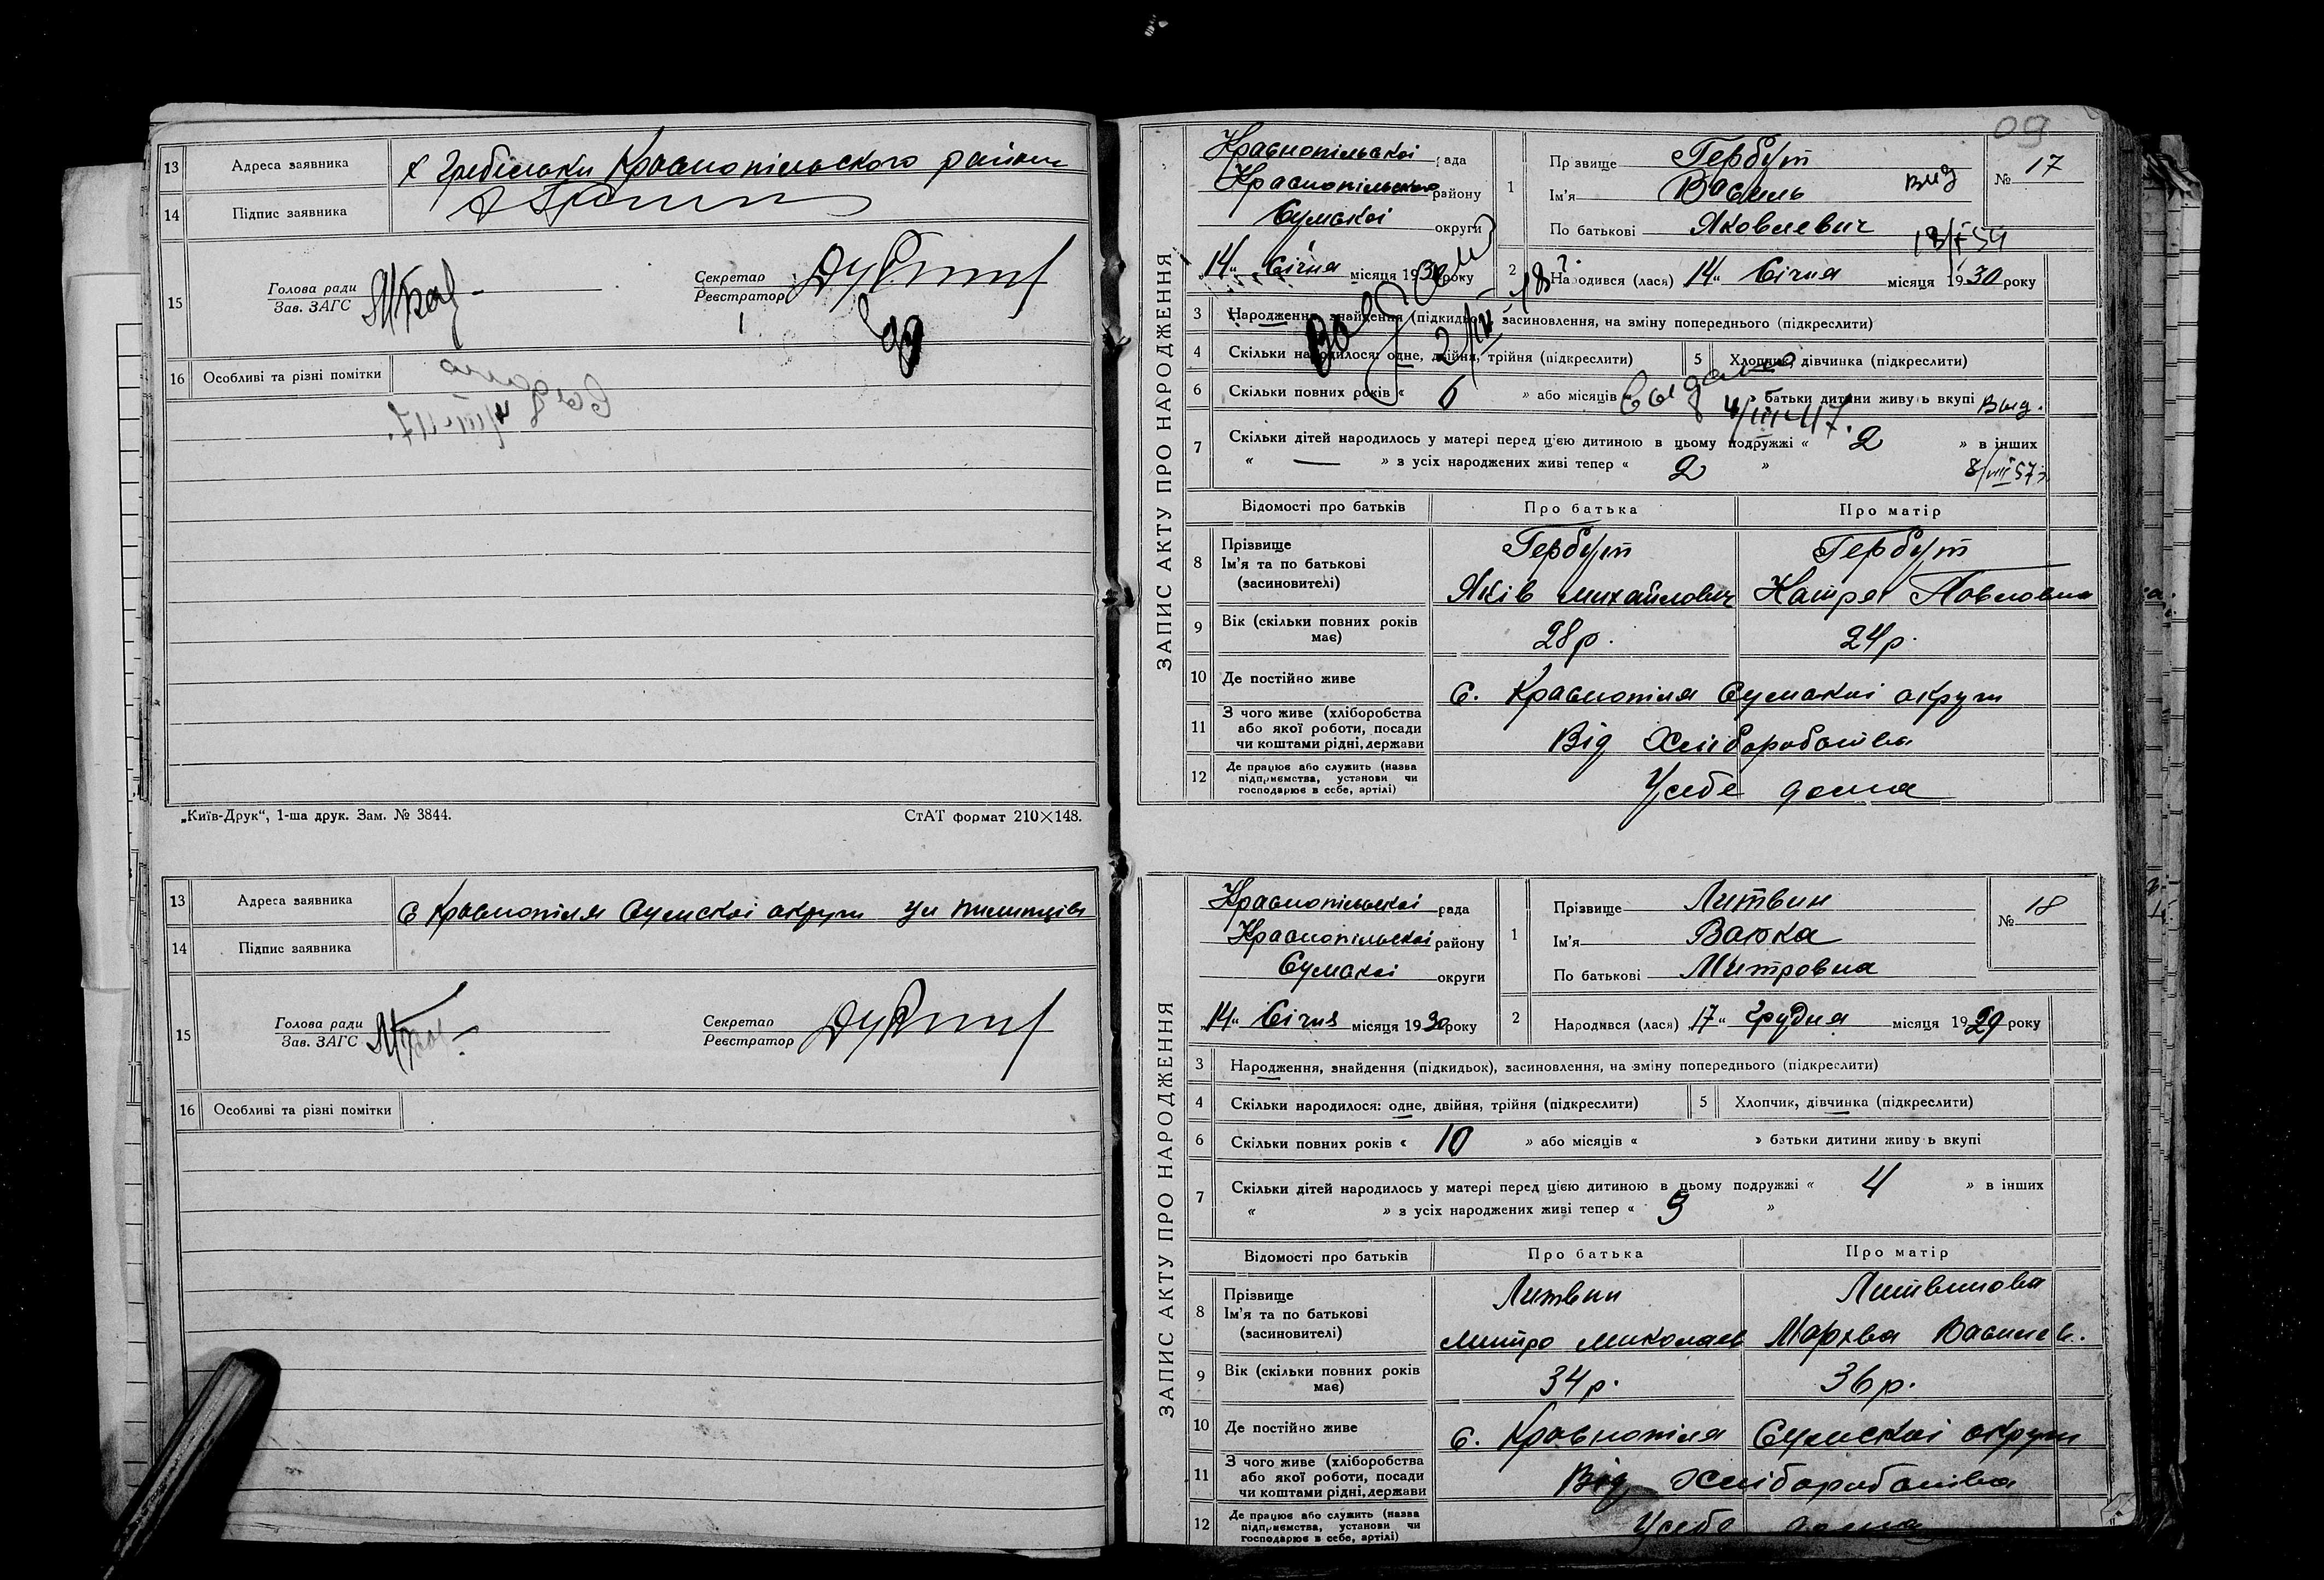 13 Адреса заявника х Гребільки Краснопільского району
14 Підпис заявника
15 Голова ради
Зав. ЗАГС
Секретар
Реєстратор
16 Особливі та різні помітки
„Київ-Друк“, 1-ша друк. Зам. № 3844. СтАТ формат 210×148.
13 Адреса заявника с Краснопілля Сумскоі округи ул
14 Підпис заявника
15 Голова ради
Зав. ЗАГС
Секретар
Реєстратор
16 Особливі та різні помітки
09
ЗАПИС АКТУ ПРО НАРОДЖЕННЯ
Краснопільскоі рада
Краснопільского району
Сумскоі округи
„14“ Січня місяця 1930 року
1 Прізвище Гербут
Ім'я Василь
По батькові Яковлевич
№ 17
вид
2 Народився (лася) 14“ Січня місяця 1930 року
3 Народження, знайдення (підкидьок), засиновлення, на зміну попереднього (підкреслити)
4 Скільки народилося: одне, двійня, трійня (підкреслити) 5 Хлопчик, дівчинка (підкреслити)
6 Скільки повних років « 6 » або місяців « » батьки дитини живуть вкупі
Выдано
4/III-47.
Выд.
7 Скільки дітей народилось у матері перед цією дитиною в цьому подружжі « 2 » в інших
« — » з усіх народжених живі тепер « 2 »
8/VIII 57
Відомості про батьків Про батька Про матір
8 Прізвище Гербут Гербут
Ім'я та по батькові
(засиновителі) Яків Михайлович Катря Павловна
9 Вік (скільки повних років має) 28 р. 24 р.
10 Де постійно живе с. Краснопілля Сумскоі округи
11 З чого живе (хліборобства
або якої роботи, посади
чи коштами рідні, держави Від Хліборобства
12 Де працює або служить (назва
підприємства, установи чи
господарює в себе, артілі) У себе дома
ЗАПИС АКТУ ПРО НАРОДЖЕННЯ
Краснопільскоі рада
Краснопільскоі району
Сумскоі округи
„14“ Січня місяця 1930 року
1 Прізвище Литвин
Ім'я Варка
По батькові Митровна
№ 18
2 Народився (лася) 17“ Грудня місяця 1929 року
3 Народження, знайдення (підкидьок), засиновлення, на зміну попереднього (підкреслити)
4 Скільки народилося: одне, двійня, трійня (підкреслити) 5 Хлопчик, дівчинка (підкреслити)
6 Скільки повних років « 10 » або місяців « » батьки дитини живуть вкупі
7 Скільки дітей народилось у матері перед цією дитиною в цьому подружжі « 4 » в інших
« » з усіх народжених живі тепер « »
Відомості про батьків Про батька Про матір
8 Прізвище Литвин Литвинова
Ім'я та по батькові
(засиновителі) Митро Миколаєв Мархва Василев.
9 Вік (скільки повних років має) 34 р. 36 р.
10 Де постійно живе с. Краснопілля Сумскоі округи
11 З чого живе (хліборобства
або якої роботи, посади
чи коштами рідні, держави Від Хліборобства
12 Де працює або служить (назва
підприємства, установи чи
господарює в себе, артілі) У себе дома